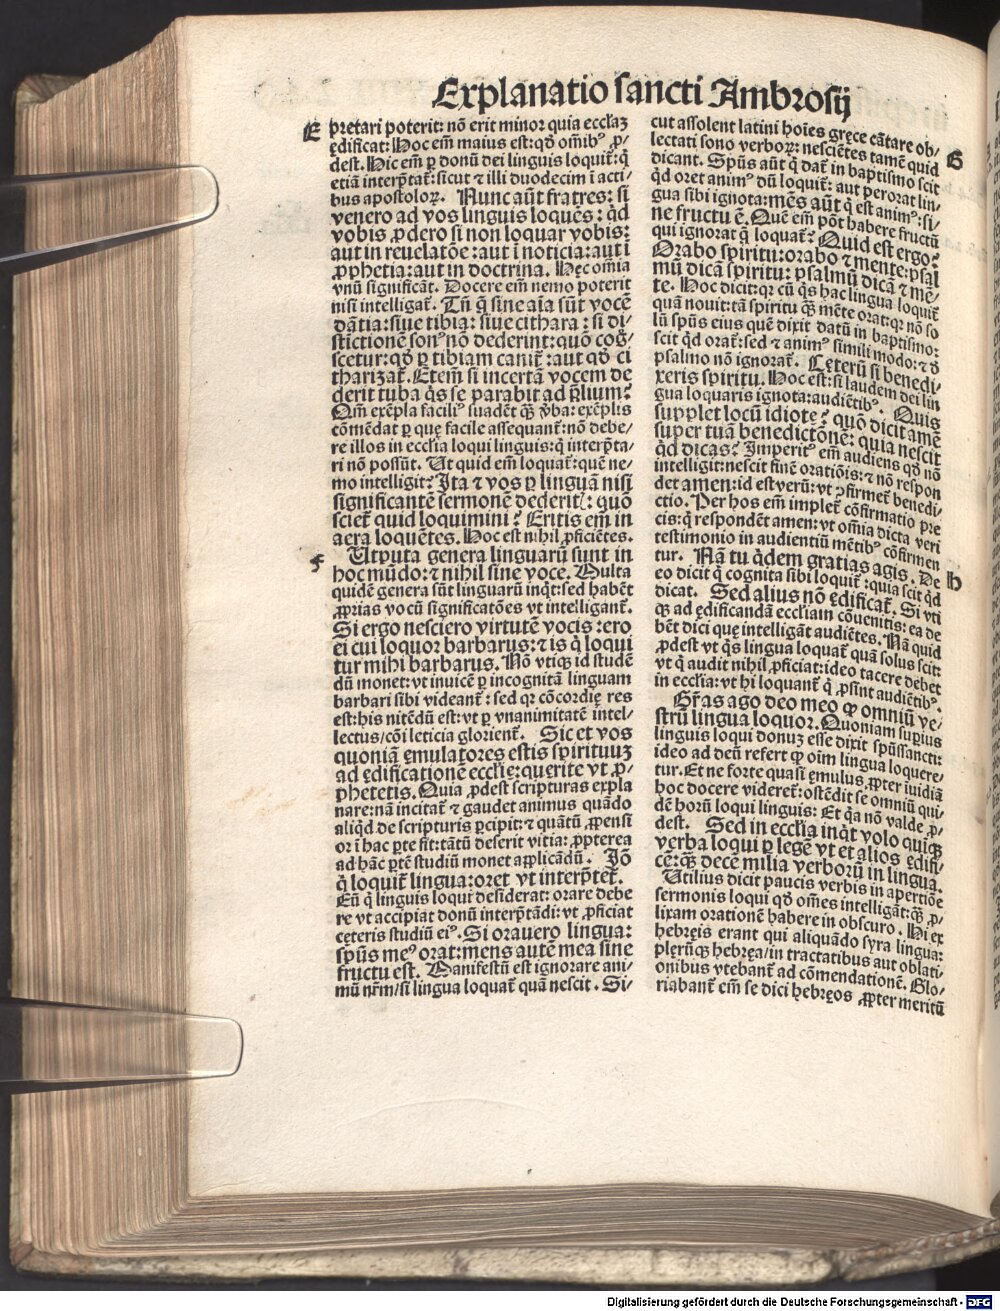 Explanatio sancti Ambrosij
E p̄retari poterit: nō erit minor quia eccłaʒ
ędificat: Hoc em̄ maius est: qđ omibꝰ ꝓ⸗
dest. Hic em̄ ꝑ donū dei linguis loquit̄: q̇
etiā interp̄tat̄: sicut ⁊ illi duodecim i acti⸗
bus apostoloꝝ. Nunc aūt fratres: si
venero ad vos linguis loquēs: qd
vobis ꝓdero si non loquar vobis:
aut in reuelatōe: aut ī noticia: aut ī
ꝓphetia: aut in doctrina. Hęc om̄ia
vnū significāt. Docere em̄ nemo poterit
nisi intelligat̄. Tn̄ q̄ sine aīa sūt vocē
dātia: siue tibia: siue cithara: si di⸗
stictionē sonꝰ nō dederint: quō cog⸗
scetur: qđ ꝑ tibiam canit̄: aut qđ ci
tharizat̄. Etem̄ si incertā vocem de
derit tuba q̇s se parabit ad p̄lium?
Qm̄ exēpla faciliꝰ suadēt q̄ʒ v̄ba: exēplis
cōmēdat ꝑ quę facile assequant̄: nō debe⸗
re illos in ecclīa loqui linguis: q̇ interp̄ta⸗
ri nō possūt. Ut quid em̄ loquat̄: quē ne⸗
mo intelligit? Ita ⁊ vos ꝑ linguā nisi
significantē sermonē dederitꝭ: quō
sciet̄ quid loquimini? Eritis em̄ in
aera loquētes. Hoc est nihil ꝓficiētes.
F Utputa genera linguarū sunt in
hoc mūdo: ⁊ nihil sine voce. Multa
quidē genera sūt linguarū inq̇t: sed habēt
ꝓprias vocū significatōes vt intelligant̄.
Si ergo nesciero virtutē vocis: ero
ei cui loquor barbarus: ⁊ is q̇ loqui
tur mihi barbarus. Nō vtiqʒ id studē
dū monet: vt inuicē ꝑ incognitā linguam
barbari sibi videant̄: sed qꝛ cōcordię res
est: his nitēdū est: vt ꝑ vnanimitatē intel⸗
lectus/ cōi leticia glorient̄. Sic et vos
quoniā emulatores estis spirituuʒ
ad ędificationē ecclīe: querite vt ꝓ⸗
phetetis. Quia ꝓdest scripturas expla
nare: nā incitat̄ ⁊ gaudet animus quādo
aliq̇d de scripturis ꝑcipit: ⁊ quātū ꝓpensi
or ī hac ꝑte fit: tātū deserit vitia: ꝓpterea
ad hāc ꝑtē studiū monet applicādū. Iō
q̇ loquit̄ lingua: oret vt interp̄tet̄.
Eū q̇ linguis loqui desiderat: orare debe
re vt accipiat donū interp̄tādi: vt ꝓficiat
cęteris studiū eiꝰ. Si orauero lingua:
spūs meꝰ orat: mens autē mea sine
fructu est. Manifestū est ignorare ani⸗
mū nr̄m/ si lingua loquat̄ quā nescit. Si⸗
cut assolent latini hoīes gręce cātare ob⸗
lectati sono verboꝝ: nesciētes tamē quid
G dicant. Spūs aūt q̇ dat̄ in baptismo scit
qd oret animꝰ dū loquit̄: aut perorat lin⸗
gua sibi ignota: mēs aūt q̄ est animꝰ: si⸗
ne fructu ē. Quē em̄ pōt habere fructū
qui ignorat q̄ loquat̄? Quid est ergo?
Orabo spiritu: orabo ⁊ mente: psal
mū dicā spiritu: psalmū dicā ⁊ mē⸗
te. Hoc dicit: qꝛ cū q̇s hac lingua loquit̄
quā nouit: tā spiritu q̄ʒ mēte orat: qꝛ nō so
lū spūs eius quē dixit datū in baptismo:
scit qd orat̄: sed ⁊ animꝰ simili modo: ⁊ đ
psalmo nō ignorat̄. Ceterū si benedi⸗
xeris spiritu. Hoc est: si laudem dei lin
gua loquaris ignota: audiētibꝰ. Quis
supplet locū idiotę? quō dicit amē
super tuā benedictōnē: quia nescit
qd dicas? Imperitꝰ em̄ audiens qđ nō
intelligit: nescit finē orationis: ⁊ nō respon
det amen: id est verū: vt ꝯfirmet̄ benedi⸗
ctio. Per hos em̄ implet̄ cōfirmatio pre
cis: q̇ respondēt amen: vt om̄ia dicta veri
testimonio in audientiū mētibꝰ cōfirmen
tur. Nā tu q̇dem gratias agis. De
H eo dicit q̇ cognita sibi loquit̄: quia scit qd
dicat. Sed alius nō ędificat̄. Si vti
qʒ ad ędificandā eccliam cōuenitis: ea de
bēt dici quę intelligāt audiētes. Nā quid
ꝓdest vt q̇s lingua loquat̄ quā solus scit:
vt q̇ audit nihil ꝓficiat: ideo tacere debet
in ecclīa: vt hi loquant̄ q̇ ꝓsint audiētibꝰ.
Gr̄as ago deo meo ꝙ omniū ve⸗
strū lingua loquor. Quoniam suꝑius
linguis loqui donuʒ esse dixit spūssancti:
ideo ad deū refert ꝙ oīm lingua loquere⸗
tur. Et ne forte quasi ęmulus ꝓpter iuidiā
hoc docere videret̄: ostēdit se omniū qui⸗
dē horū loqui linguis: Et q̇a nō valde ꝓ⸗
dest. Sed in ecclīa inq̇t volo quiqʒ
verba loqui ꝑ legē vt et alios ędifi⸗
cē: q̄ʒ decē milia verborū in lingua.
Utilius dicit paucis verbis in apertiōe
sermonis loqui qđ om̄es intelligāt: q̄ʒ ꝓ⸗
lixam orationē habere in obscuro. Hi ex
hebręis erant qui aliquādo syra lingua:
plerūqʒ hebręa/ in tractatibus aut oblati⸗
onibus vtebant̄ ad cōmendationē. Glo⸗
riabant̄ em̄ se dici hebręos ꝓpter meritū
Digitalisierung gefördert durch die Deutsche Forschungsgemeinschaft - DFG